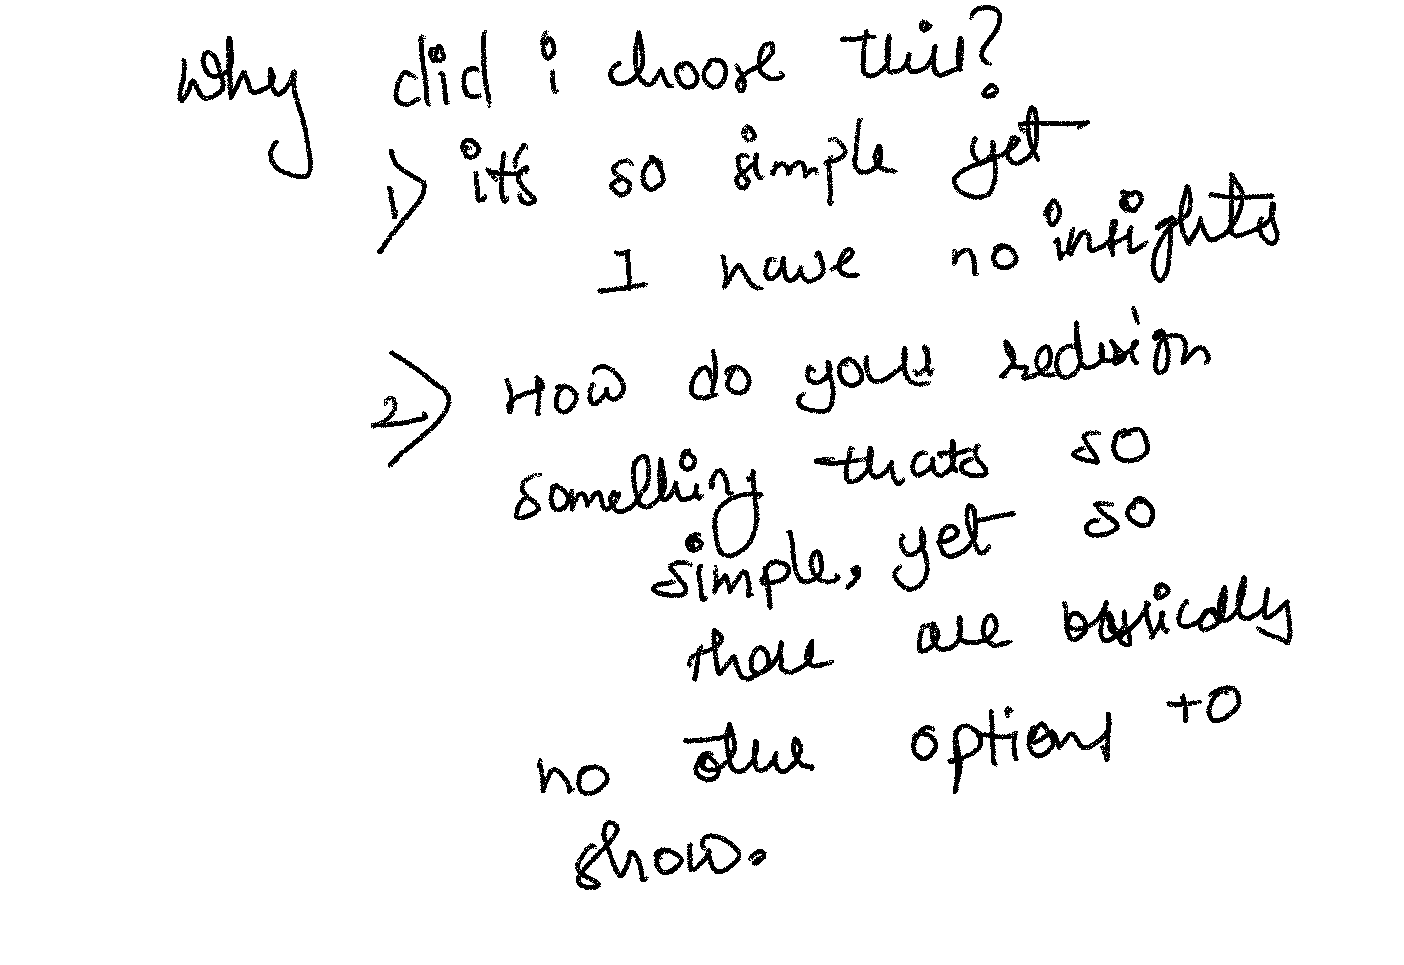 Why did i choose this?
1) it's so simple yet
I have no insights
2) How do you redesign
something thats so
simple, yet so
there are basically
no other options to
show.